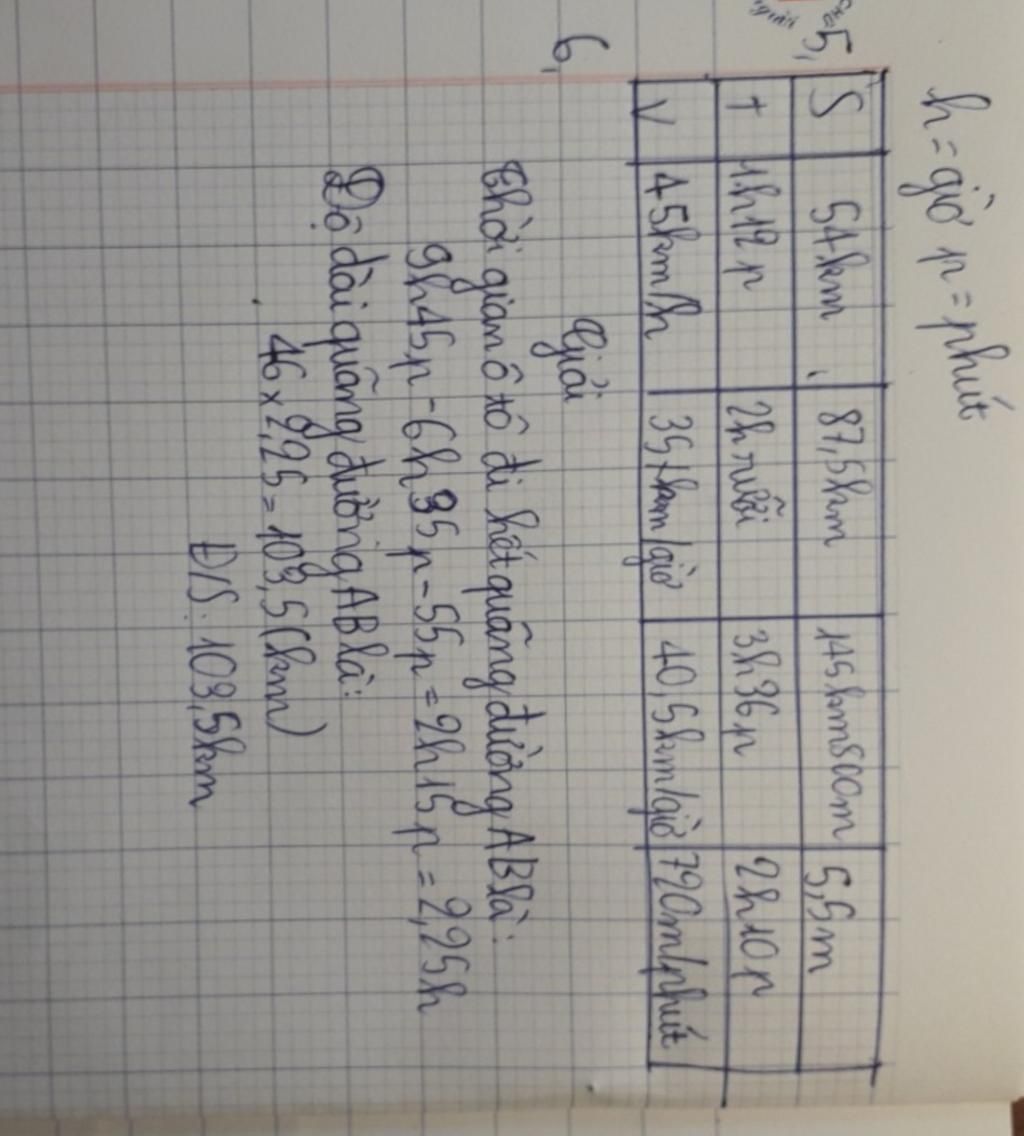 h = giờ p = phút
5,
S 54km 87,5km 145km800m 5,5m
t 1h12p 2h rưỡi 3h36p 2h10p
V 45km/h 35km/giờ 40,5km/giờ 720m/phút
6,
Giải
Thời gian ô tô đi hết quãng đường AB là:
9h45p - 6h35p - 55p = 2h15p = 2,25h
Độ dài quãng đường AB là:
46 x 2,25 = 103,5(km)
Đ/S: 103,5km